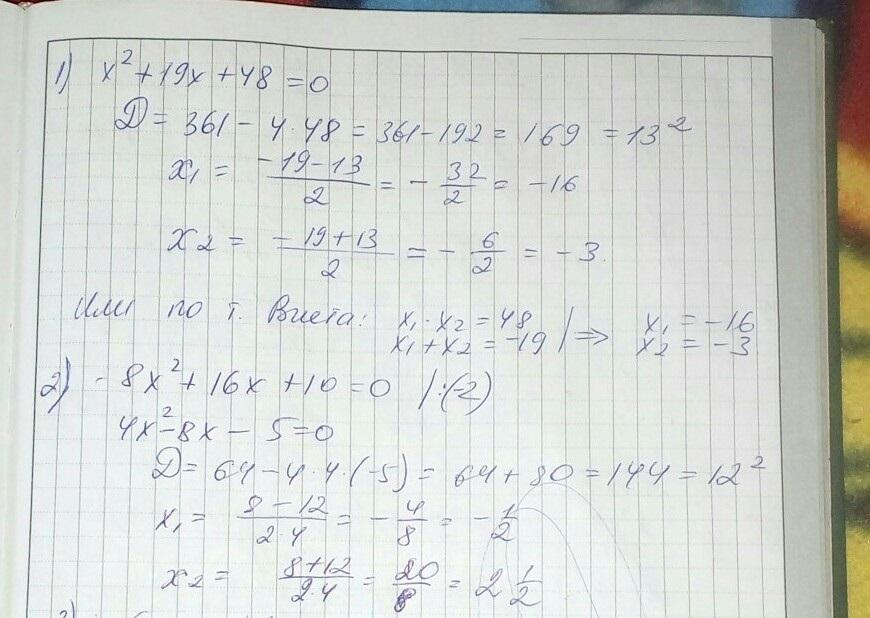 1) x² + 19x + 48 = 0
D = 361 - 4·48 = 361 - 192 = 169 = 13²
x₁ = (-19-13)/2 = - 32/2 = -16
x₂ = (-19+13)/2 = - 6/2 = -3.
Или по т. Виета: x₁·x₂ = 48
x₁+x₂ = -19 | ⇒ x₁ = -16
x₂ = -3
2) -8x² + 16x + 10 = 0 |:(-2)
4x² - 8x - 5 = 0
D = 64 - 4·4·(-5) = 64 + 80 = 144 = 12²
x₁ = (8-12)/(2·4) = - 4/8 = - 1/2
x₂ = (8+12)/(2·4) = 20/8 = 2 1/2